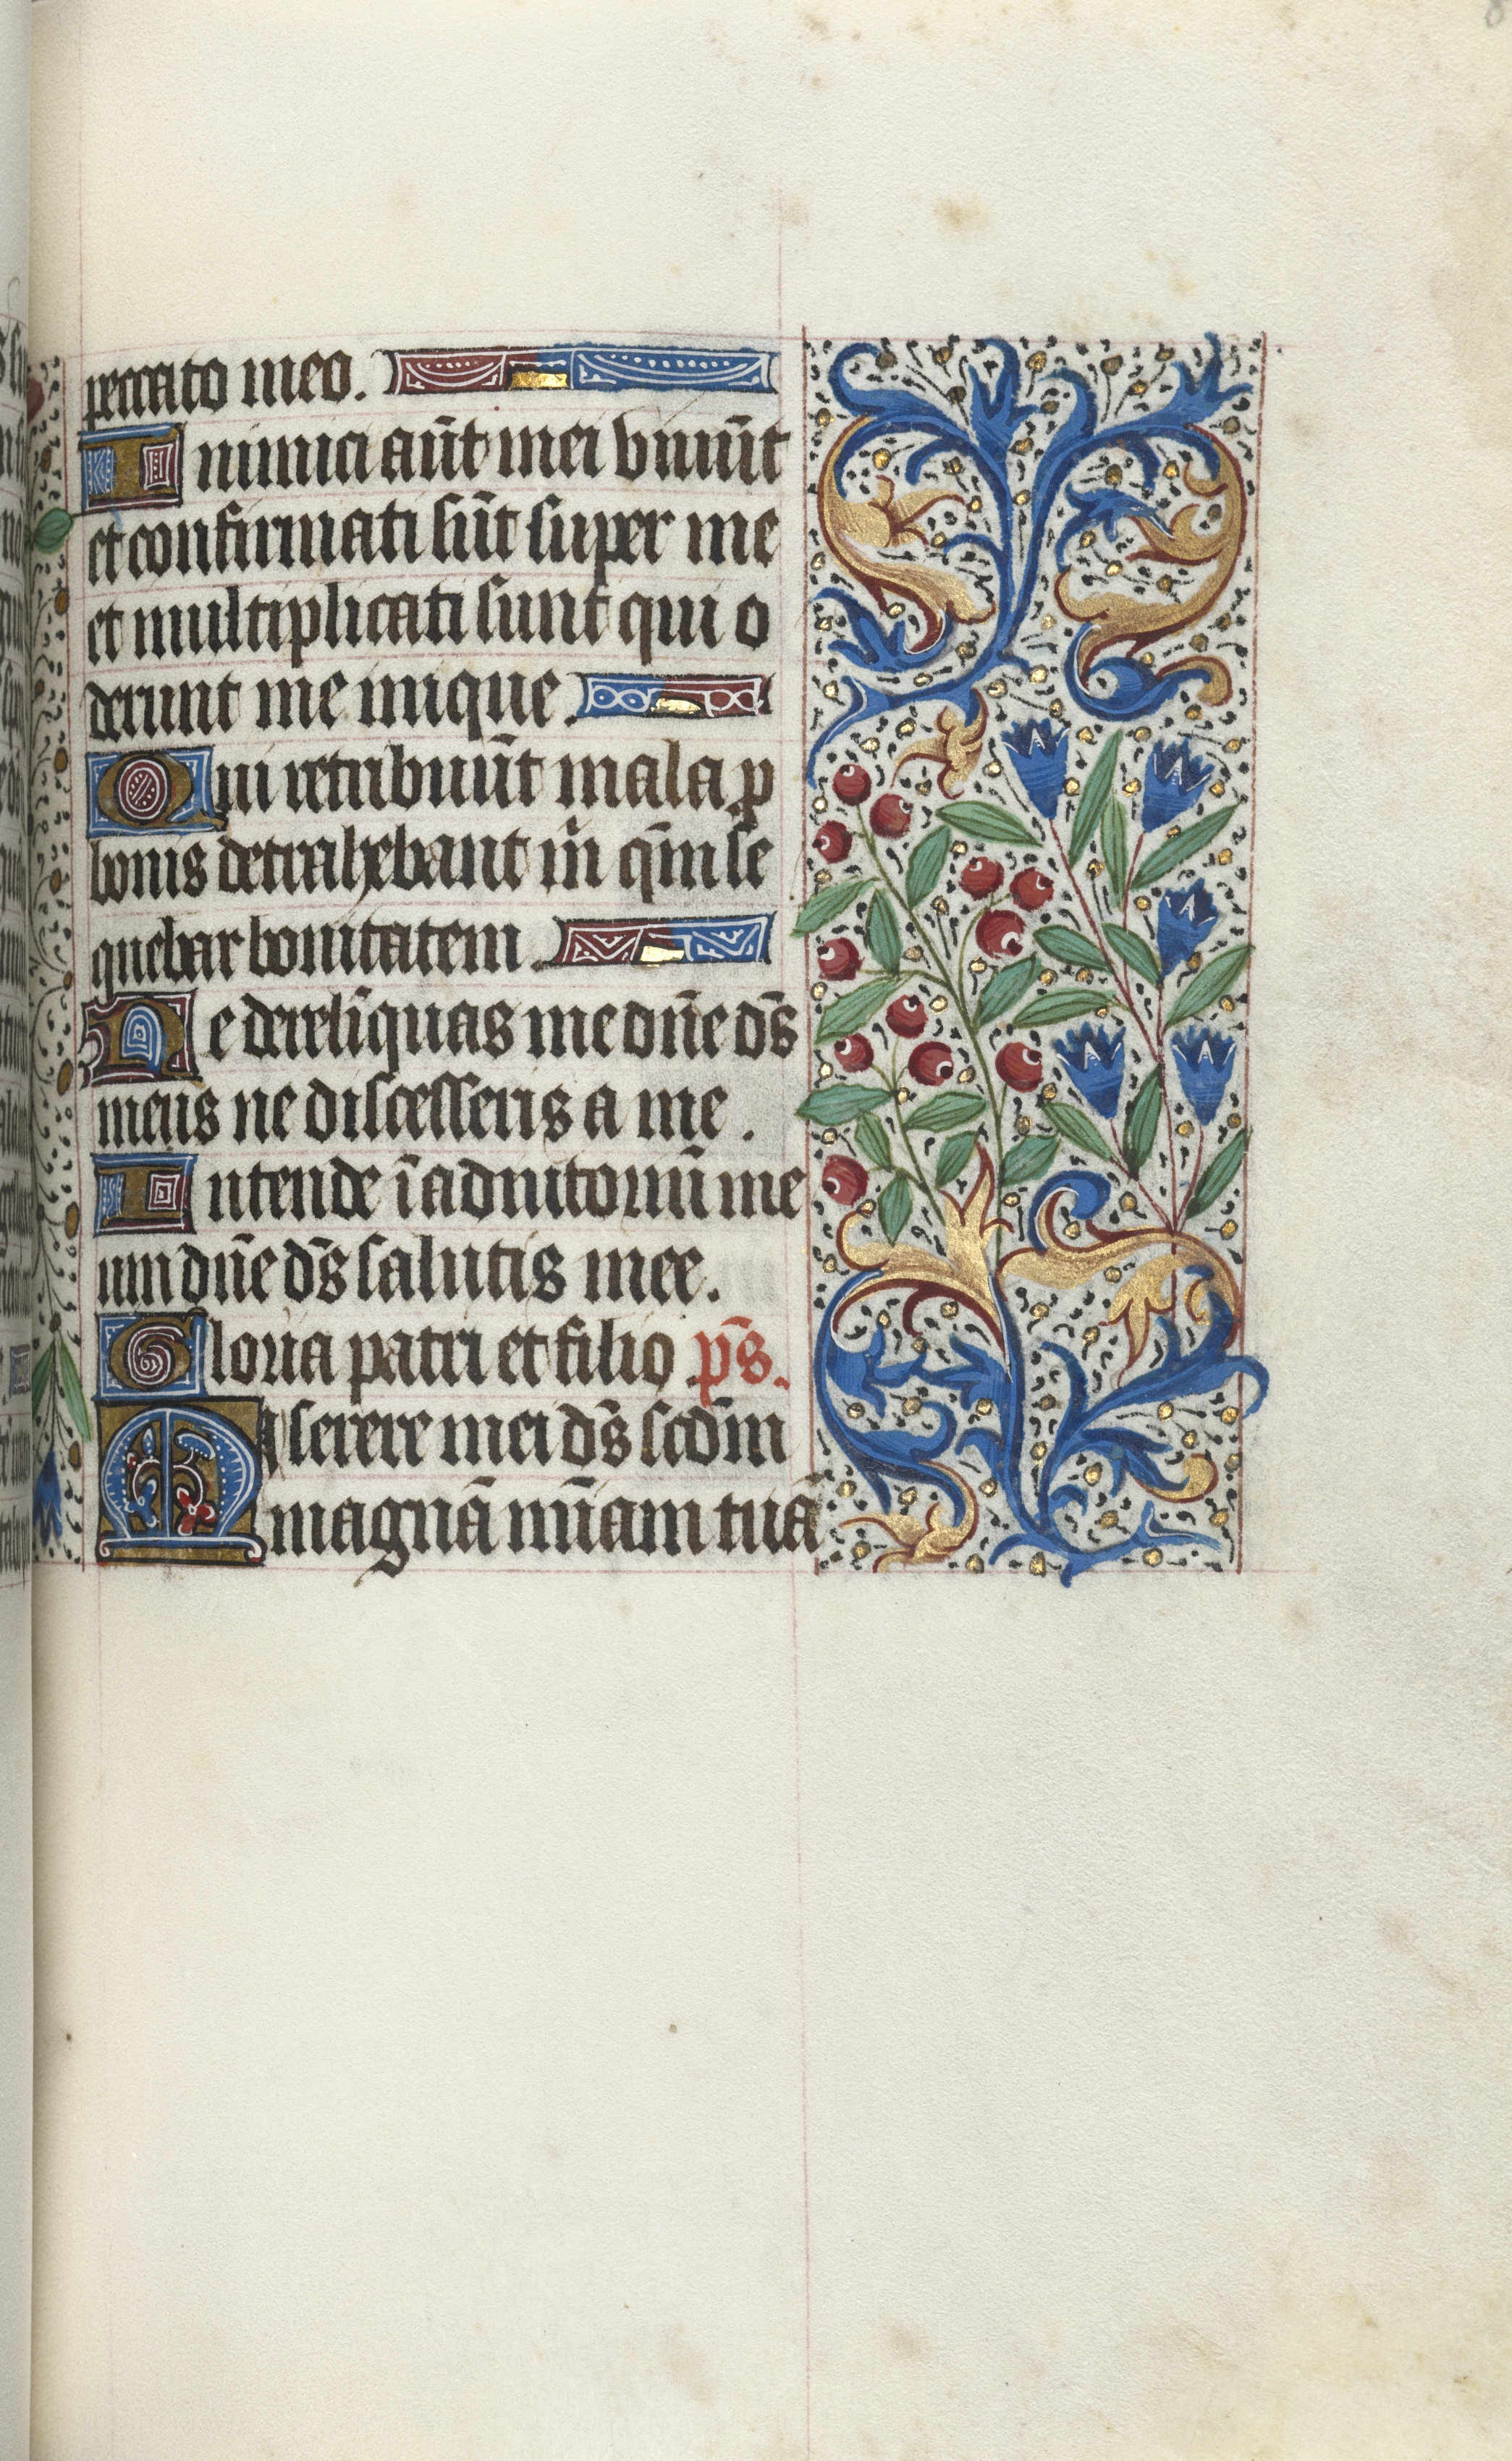 peccato meo.
Inimici aūt mei viuūt
et confirmati sūt super me
et multiplicati sunt qui o
derunt me inique.
Qui retribuūt mala p
bonis detrahebant m̄ qm̄ se
quebar bonitatem.
Ne derelīquas me dn̄e ds̄
meus ne discesseris a me.
Intende ī adiutoriū me
um dn̄e ds̄ salutis mee.
Gloria patri et filio ps̄.
Miserere mei ds̄ scdm̄
magnā mīam tuā